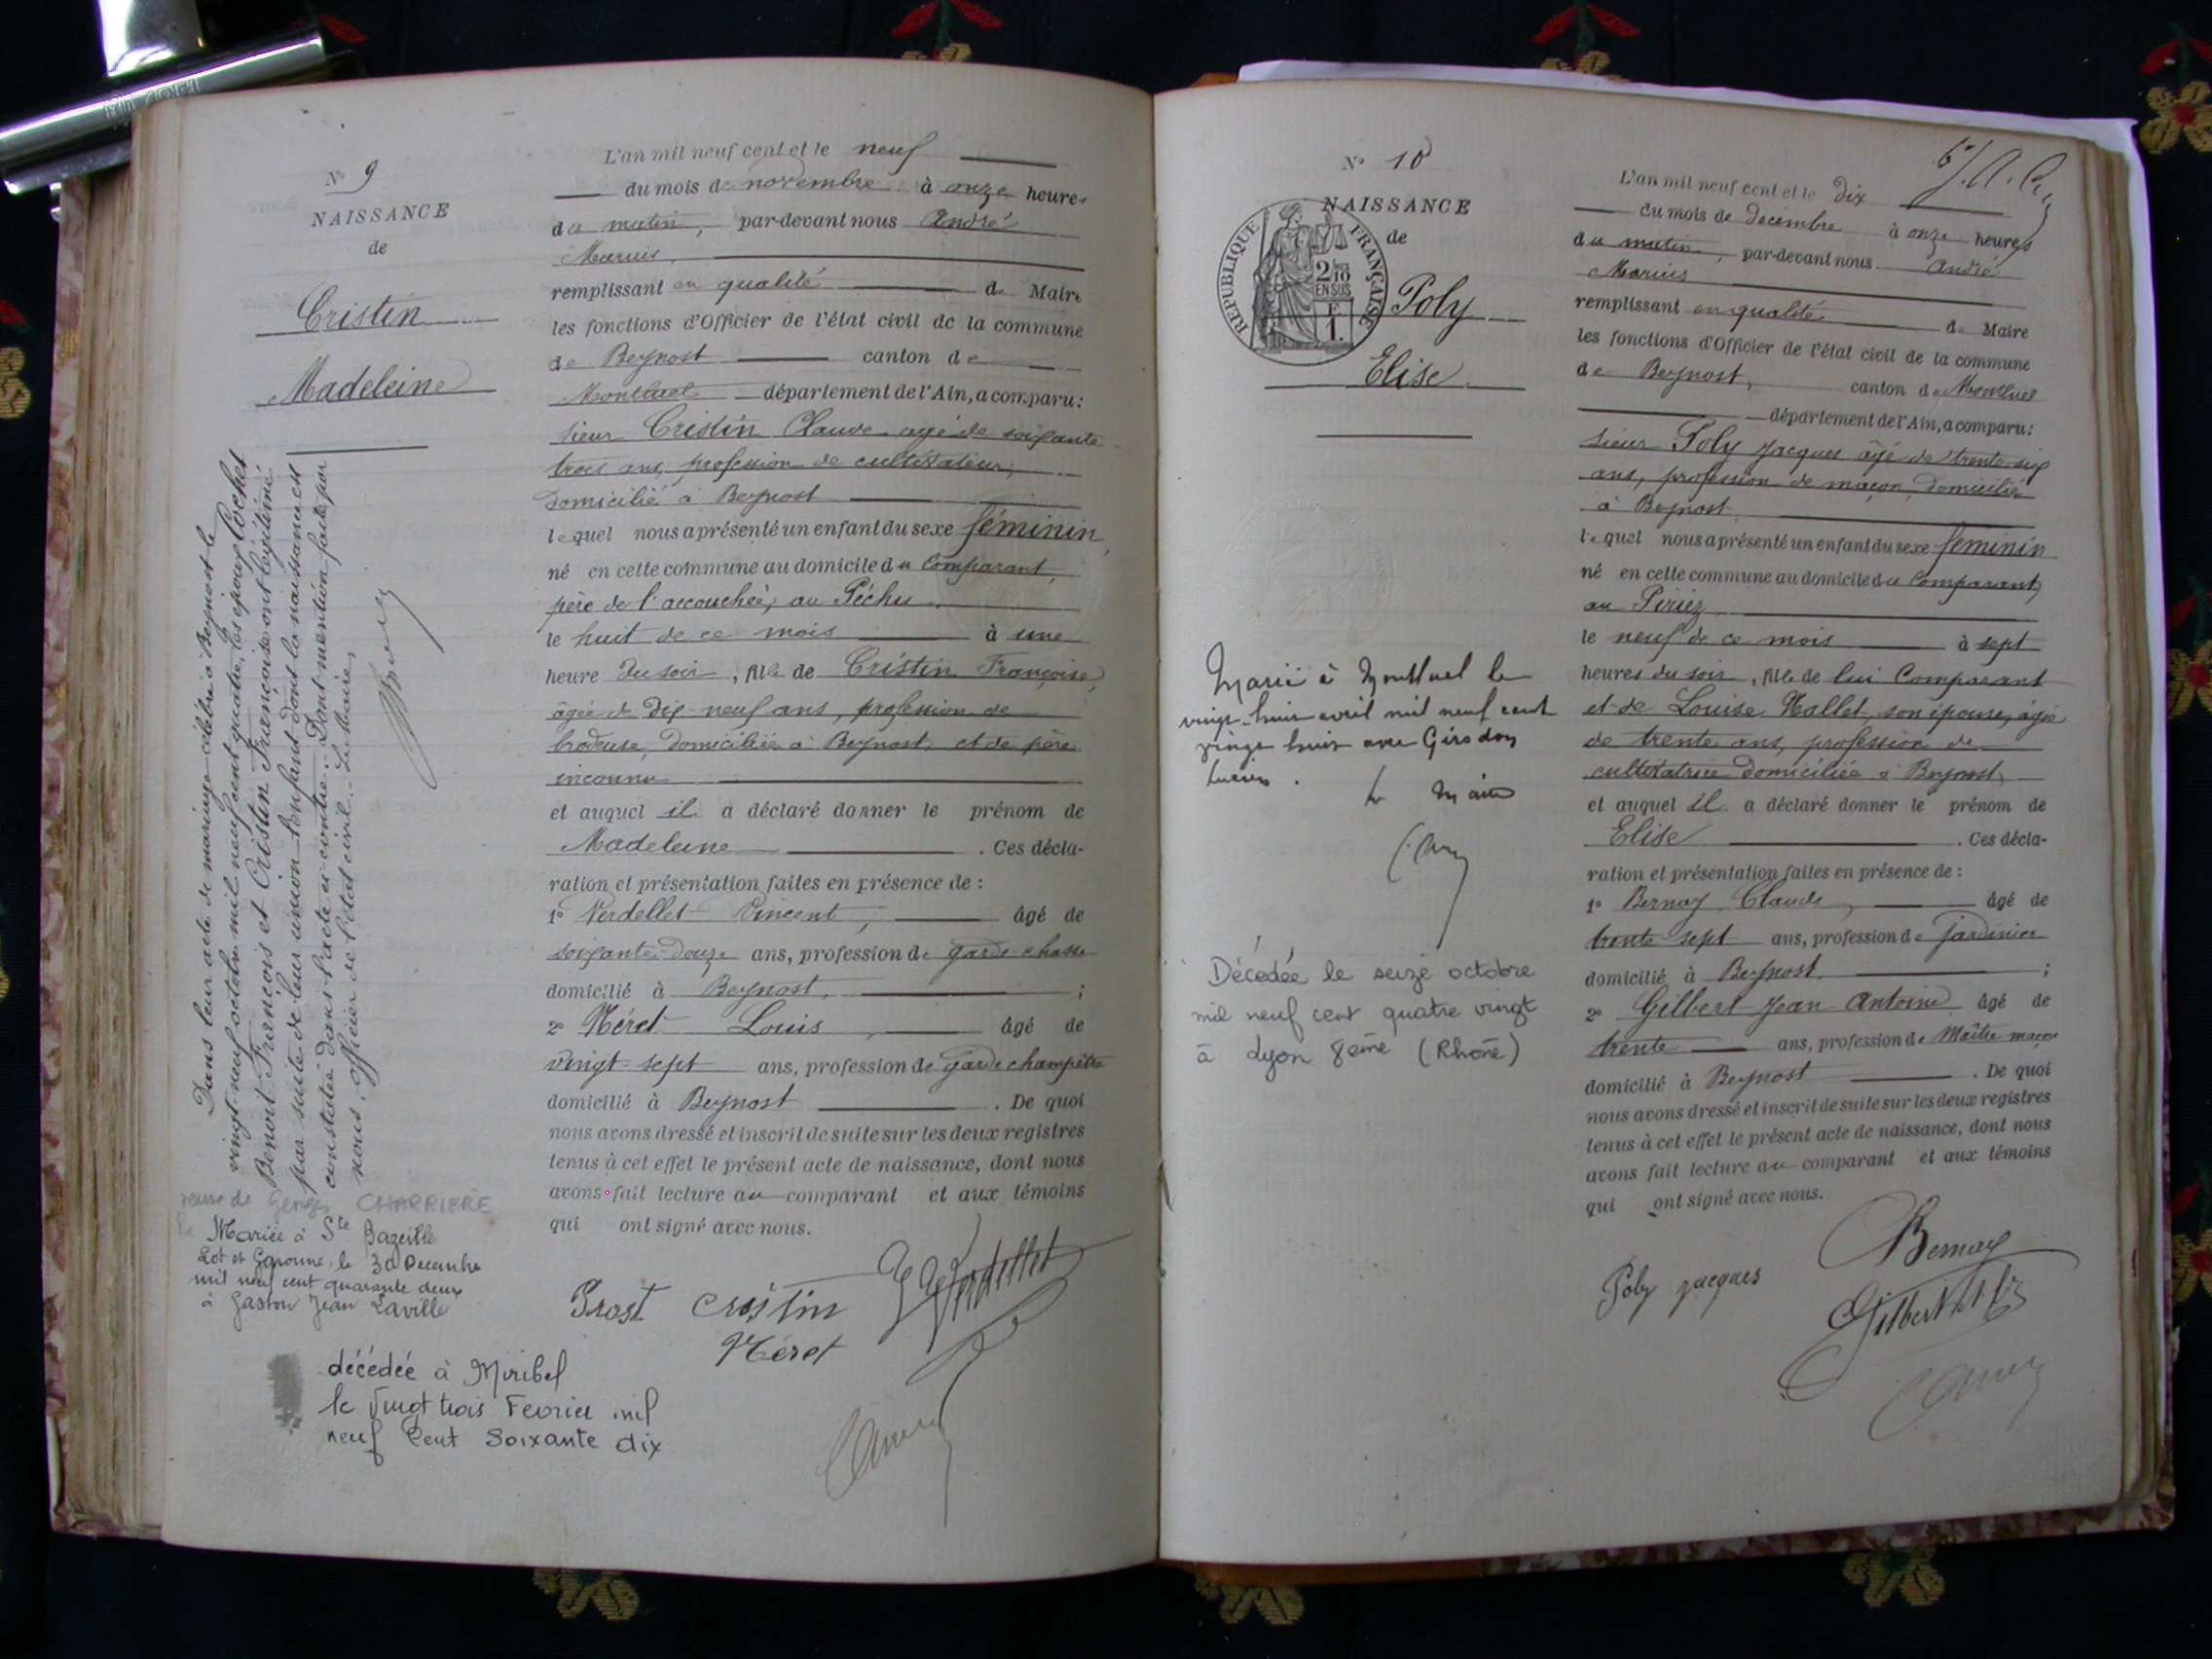 N° 9
NAISSANCE
de
Cristin
Madeleine
Dans leur acte de mariage célébré à Beynost le
vingt-neuf octobre mil neuf cent quatre, les époux Cochet
Benoit François et Cristin Françoise ont légitimé
par suite de leur union l'enfant dont la naissance est
constatée dans l'acte ci-contre. Dont mention faite par
nous, officier de l'état civil. Le Maire,
CHARRIERE
Mariée à Ste Bazeille
Lot et Garonne le 30 Decembre
mil neuf cent quarante deux
à Gaston Jean Laville
décédée à Miribel
le Vingt trois Fevrier mil
neuf Cent Soixante dix
L'an mil neuf cent et le neuf
du mois de novembre à onze heures
du matin, par-devant nous André
Marius,
remplissant en qualité de Maire
les fonctions d'Officier de l'état civil de la commune
de Beynost canton de
Montluel département de l'Ain, a comparu:
sieur Cristin Claude agé de soixante
trois ans, profession de cultivateur,
domicilié à Beynost
lequel nous a présenté un enfant du sexe féminin,
né en cette commune au domicile du Comparant,
père de l'accouchée, au Péchu
le huit de ce mois à une
heure du soir, fille de Cristin Françoise,
âgée de dix-neuf ans, profession de
brodeuse, domiciliée à Beynost, et de père
inconnu
et auquel il a déclaré donner le prénom de
Madeleine. Ces décla-
ration et présentation faites en présence de :
1° Verdellet Vincent, âgé de
soixante-douze ans, profession de garde-chasse
domicilié à Beynost, ;
2° Méret Louis, âgé de
vingt-sept ans, profession de garde champêtre
domicilié à Beynost. De quoi
nous avons dressé et inscrit de suite sur les deux registres
tenus à cet effet le présent acte de naissance, dont nous
avons fait lecture au comparant et aux témoins
qui ont signé avec nous.
Prost Cristin Verdellet
Méret
N° 10
NAISSANCE
de
REPUBLIQUE FRANÇAISE
2/10 EN SUS
F
1.
Poly
Elise
Mariée à Montluel le
vingt-huit avril mil neuf cent
vingt huit avec Girodon
Lucien.
Le Maire
Décédée le seize octobre
mil neuf cent quatre vingt
à Lyon 8eme (Rhône)
L'an mil neuf cent et le Dix
du mois de decembre à onze heures
du matin, par-devant nous André
Marius
remplissant en qualité de Maire
les fonctions d'Officier de l'état civil de la commune
de Beynost, canton de Montluel
département de l'Ain, a comparu:
sieur Poly Jacques âgé de trente-six
ans, profession de maçon, domicilié
à Beynost
lequel nous a présenté un enfant du sexe féminin
né en cette commune au domicile du Comparant,
au
le neuf de ce mois à sept
heures du soir, fille de lui Comparant
et de Louise Mallet, son épouse, âgée
de trente ans, profession de
cultivatrice domiciliée à Beynost,
et auquel il a déclaré donner le prénom de
Elise. Ces décla-
ration et présentation faites en présence de :
1° Bernay Claude, âgé de
trente-sept ans, profession de jardinier
domicilié à Beynost ;
2° Gilbert Jean Antoine âgé de
trente ans, profession de Maître maçon
domicilié à Beynost. De quoi
nous avons dressé et inscrit de suite sur les deux registres
tenus à cet effet le présent acte de naissance, dont nous
avons fait lecture au comparant et aux témoins
qui ont signé avec nous.
Bernay
Poly jacques
Gilbert